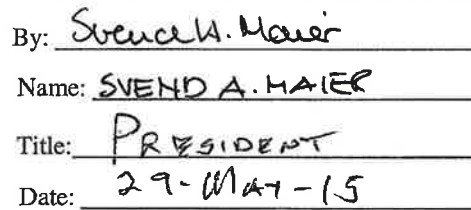 By: Svend A. Maier
Name: SVEND A. MAIER
Title: PRESIDENT
Date: 29-MAY-15